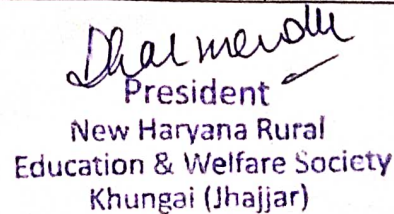 Dharmendra
President
New Haryana Rural
Education & Welfare Society
Khungai (Jhajjar)